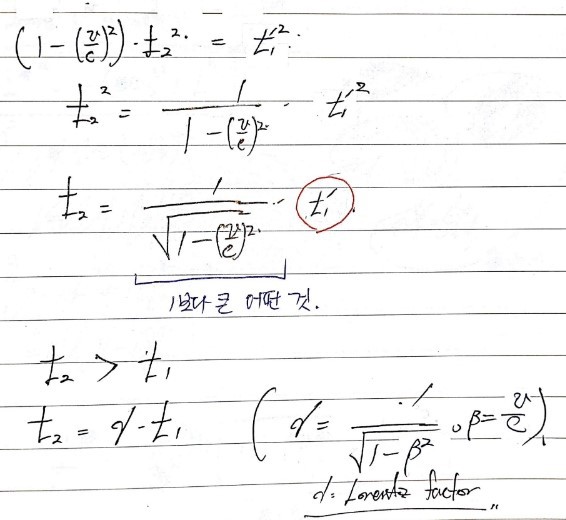 (1-(v/c)²)·t₂² = t₁'²
t₂² = 1/(1-(v/c)²) · t₁'²
t₂ = 1/√(1-(v/c)²) · t₁'
1보다 큰 어떤 것.
t₂ > t₁
t₂ = γ·t₁ (γ = 1/√(1-β²), β = v/c)
γ: Lorentz factor